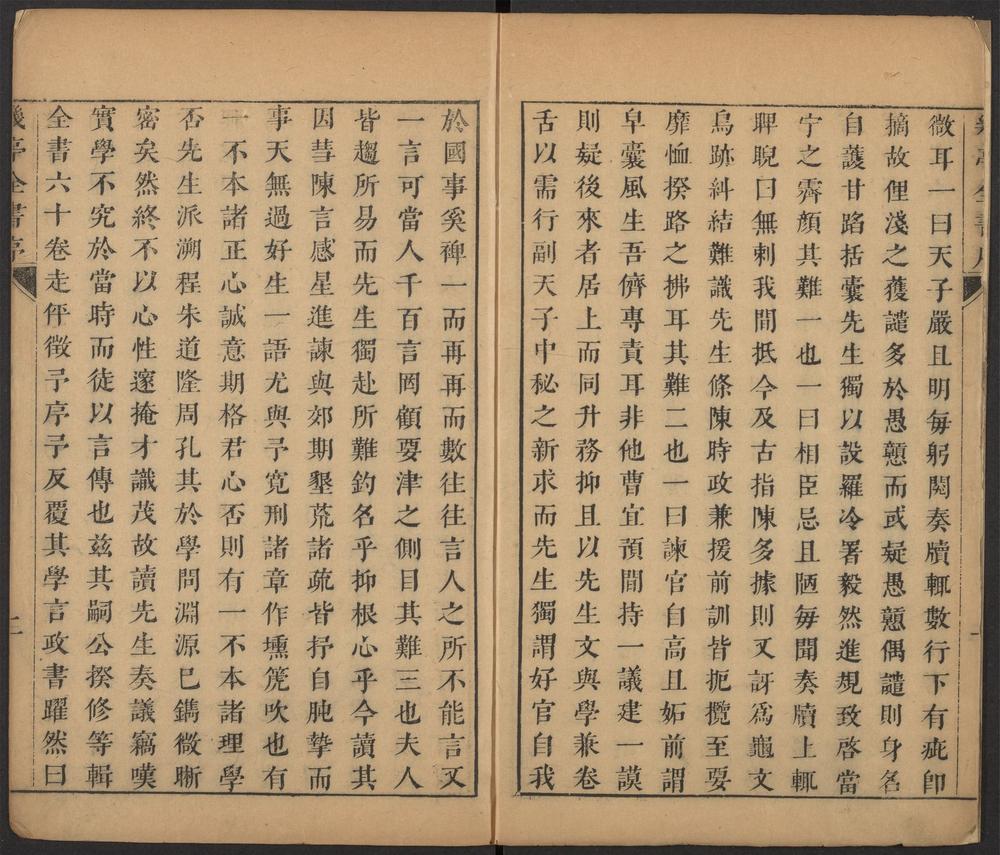 微耳一曰天子嚴且明每躬閱奏牘輒數行下有疵卽
摘故俚淺之獲譴多於愚戇而或疑愚戇偶譴則身名
自謢甘蹈括囊先生獨以設羅冷署毅然進規致啓當
宁之霽顏其難一也一曰相臣忌且陋每聞奏牘上輒
睥睨曰無刺我間抵今及古指陳多據則又訝爲龜文
鳥跡糾結難識先生條陳時政兼援前訓皆扼攬至要
靡恤揆路之拂耳其難二也一曰諫官自高且妬前謂
皁囊風生吾儕專責耳非他曹宜預間持一議建一謨
則疑後來者居上而同升務抑且以先生文與學兼卷
舌以需行副天子中秘之新求而先生獨謂好官自我
於國事奚裨一而再再而數往往言人之所不能言又
一言可當人千百言罔顧要津之側目其難三也夫人
皆趨所易而先生獨赴所難釣名乎抑根心乎今讀其
因彗陳言感星進諫與郊期墾荒諸疏皆抒自肫摯而
事天無過好生一語尤與予寬刑諸章作壎箎吹也有
一不本諸正心誠意期格君心否則有一不本諸理學
否先生派溯程朱道隆周孔其於學問淵源巳鐫微晰
密矣然終不以心性邃掩才識茂故讀先生奏議竊嘆
實學不究於當時而徒以言傳也兹其嗣公揆修等輯
全書六十卷走伻徵予序予反覆其學言政書躍然曰
幾亭全書序
二